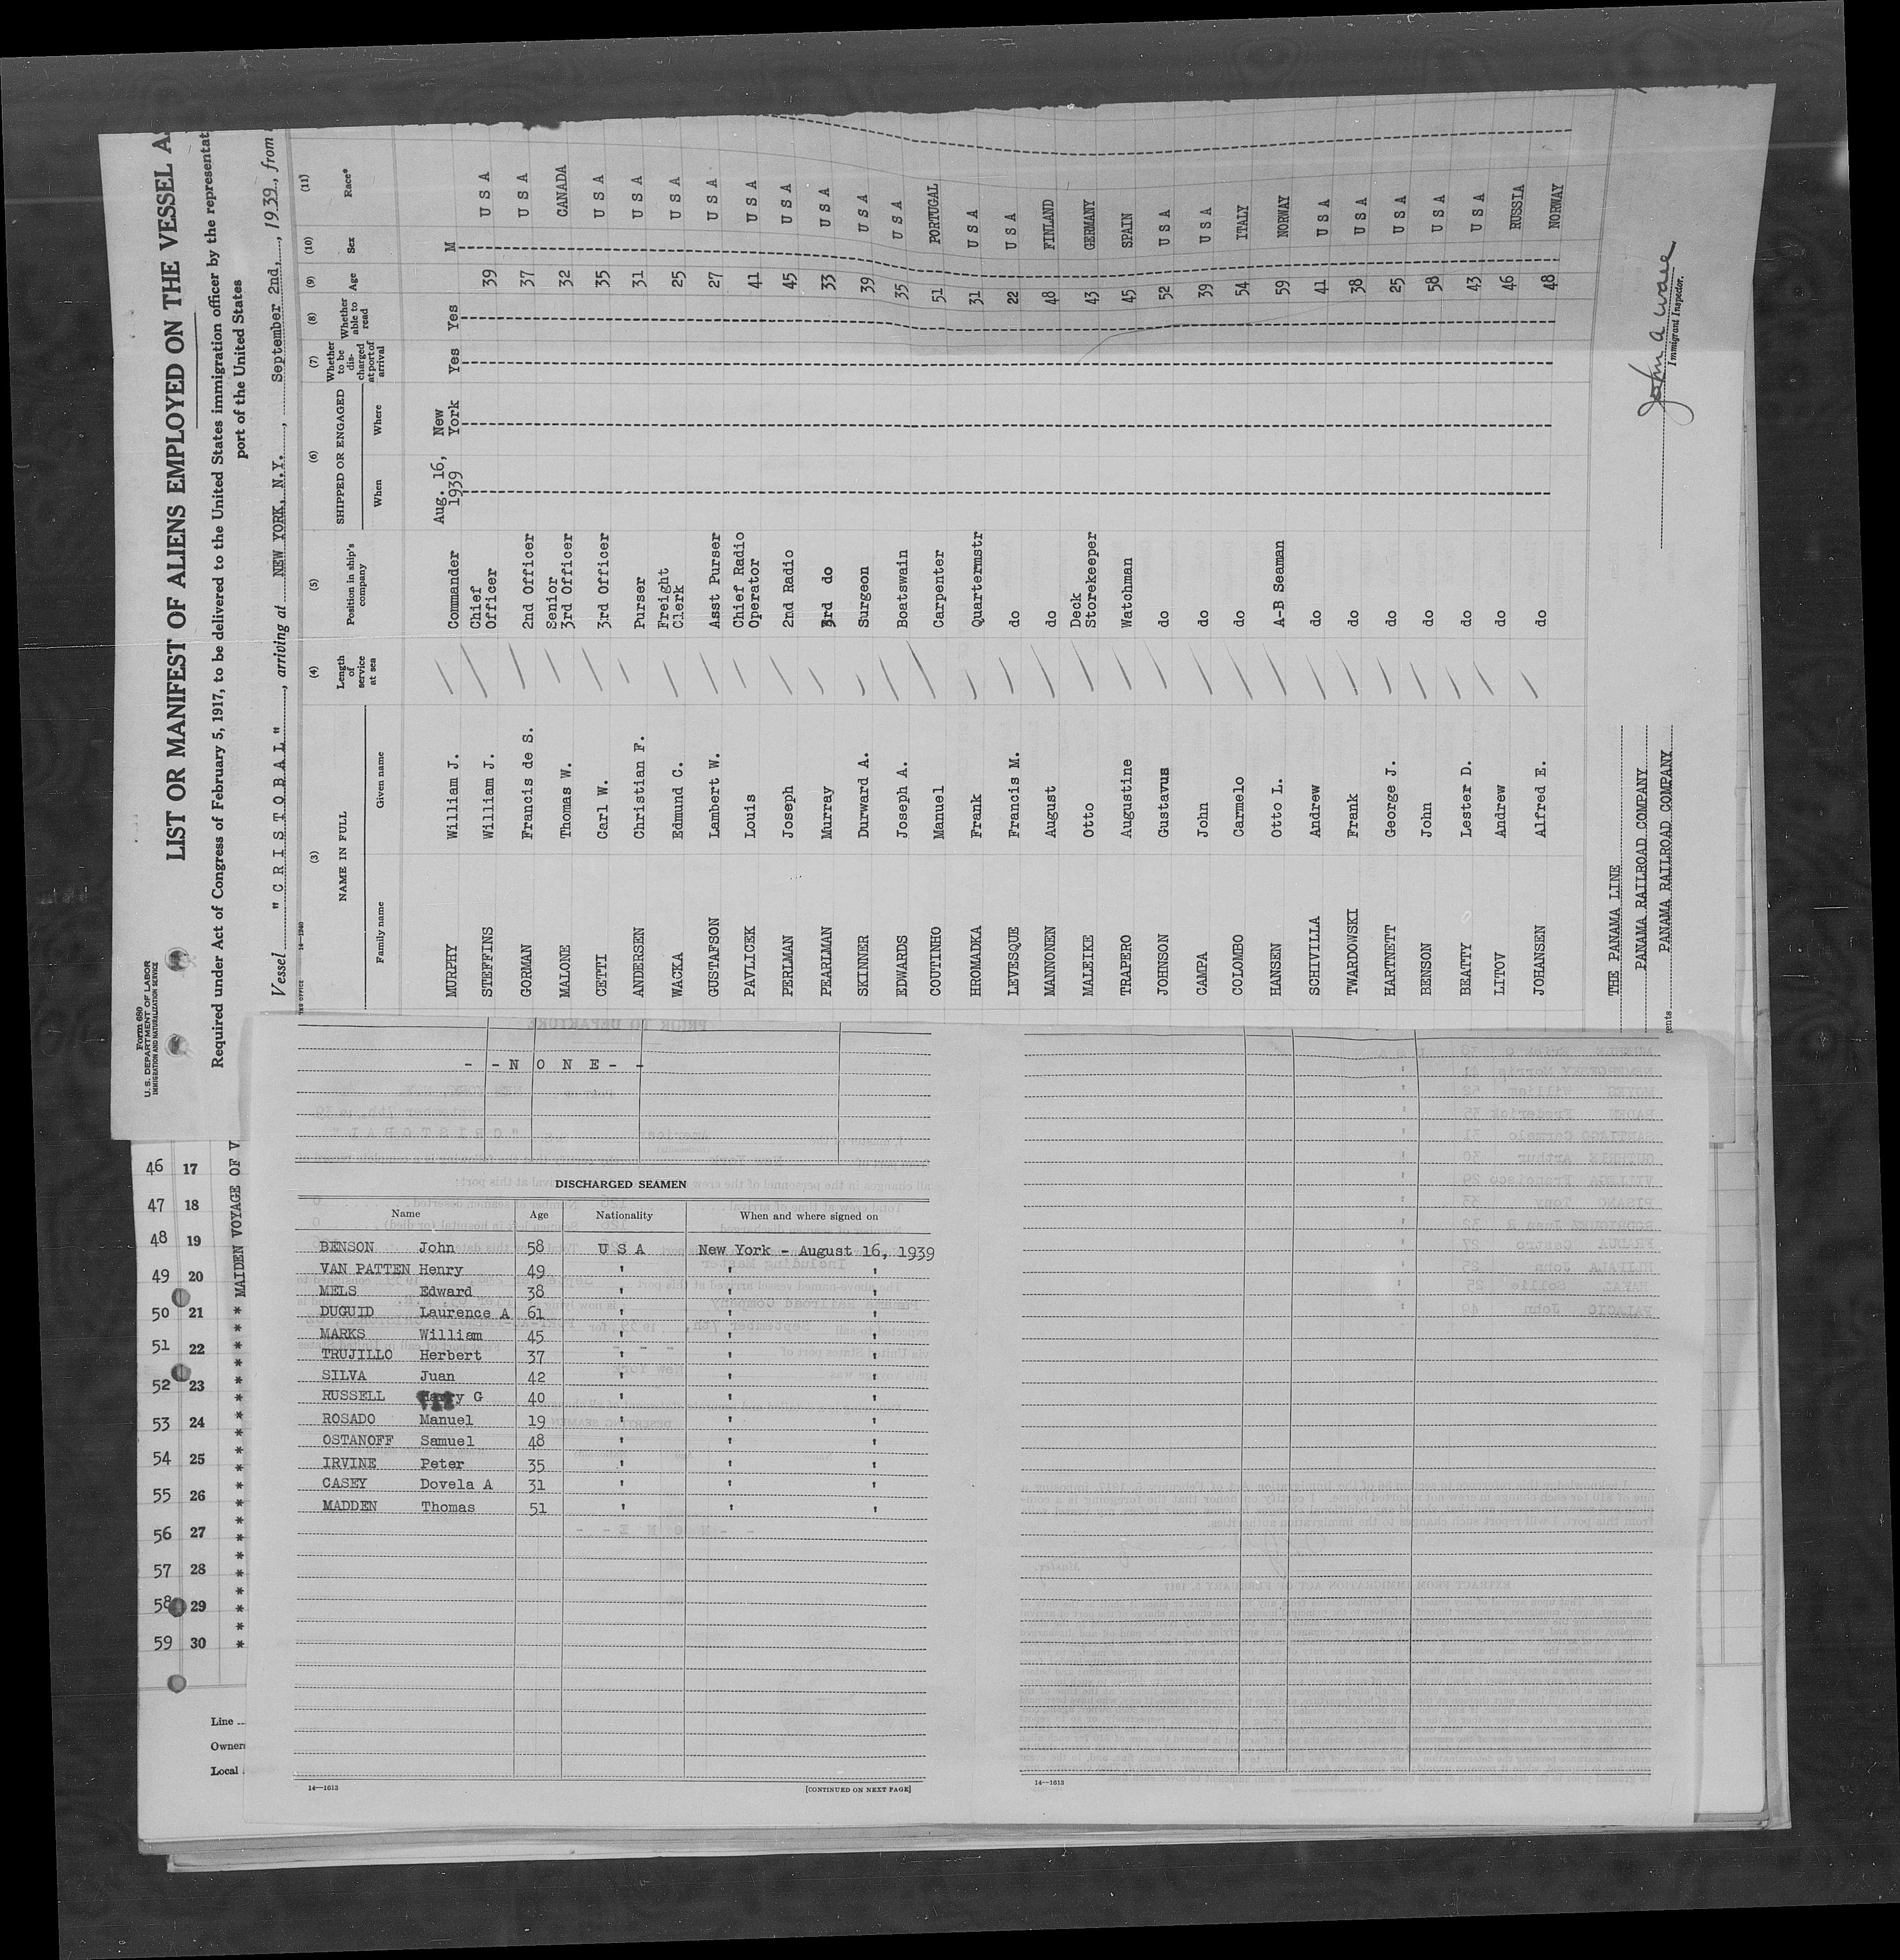 Form 680
U.S. DEPARTMENT OF LABOR
IMMIGRATION AND NATURALIZATION SERVICE
LIST OR MANIFEST OF ALIENS EMPLOYED ON THE VESSEL
Required under Act of Congress of February 5, 1917, to be delivered to the United States immigration officer by the
port of the United States
Vessel "CRISTOBAL", arriving at NEW YORK, N.Y., September 2nd, 1939, from
14—1240
(3) (4) (5) (6) (7) (8) (9) (10) (11)
NAME IN FULL Length of service at sea Position in ship's company SHIPPED OR ENGAGED Whether to be discharged at port of arrival Whether able to read Age Sex Race*
Family name Given name When Where
MURPHY William J. Commander Aug. 16, 1939 New York Yes Yes M
STEFFINS William J. Chief Officer 39 U S A
GORMAN Francis de S. 2nd Officer 37 U S A
MALONE Thomas W. Senior 3rd Officer 32 CANADA
CETTI Carl W. 3rd Officer 35 U S A
ANDERSEN Christian F. Purser 31 U S A
WACKA Edmund C. Freight Clerk 25 U S A
GUSTAFSON Lambert W. Asst Purser 27 U S A
PAVLICEK Louis Chief Radio Operator 41 U S A
PERLMAN Joseph 2nd Radio 45 U S A
PEARLMAN Murray 3rd do 33 U S A
SKINNER Durward A. Surgeon 39 U S A
EDWARDS Joseph A. Boatswain 35 U S A
COUTINHO Manuel Carpenter 51 PORTUGAL
HROMADKA Frank Quartermstr 31 U S A
LEVESQUE Francis M. do 22 U S A
MANNONEN August do 48 FINLAND
MALEIKE Otto Deck Storekeeper 43 GERMANY
TRAPERO Augustine Watchman 45 SPAIN
JOHNSON Gustavus do 52 U S A
CAMPA John do 39 U S A
COLOMBO Carmelo do 54 ITALY
HANSEN Otto L. A-B Seaman 59 NORWAY
SCHIVILLA Andrew do 41 U S A
TWARDOWSKI Frank do 38 U S A
HARTNETT George J. do 25 U S A
BENSON John do 58 U S A
BEATTY Lester D. do 43 U S A
LITOV Andrew do 46 RUSSIA
JOHANSEN Alfred E. do 48 NORWAY
THE PANAMA LINE
PANAMA RAILROAD COMPANY
PANAMA RAILROAD COMPANY
Immigrant Inspector.
46 17
47 18
48 19
49 20
50 21
51 22
52 23
53 24
54 25
55 26
56 27
57 28
58 29
59 30
MAIDEN VOYAGE OF
Line
Local
- - N O N E - -
DISCHARGED SEAMEN
Name Age Nationality When and where signed on
BENSON John 58 U S A New York - August 16, 1939
VAN PATTEN Henry 49 ' ' '
MELS Edward 38 ' ' '
DUGUID Laurence A 61 ' ' '
MARKS William 45 ' ' '
TRUJILLO Herbert 37 ' ' '
SILVA Juan 42 ' ' '
RUSSELL Harry G 40 ' ' '
ROSADO Manuel 19 ' ' '
OSTANOFF Samuel 48 ' ' '
IRVINE Peter 35 ' ' '
CASEY Dovela A 31 ' ' '
MADDEN Thomas 51 ' ' '
14—1613 [CONTINUED ON NEXT PAGE]
14—1613